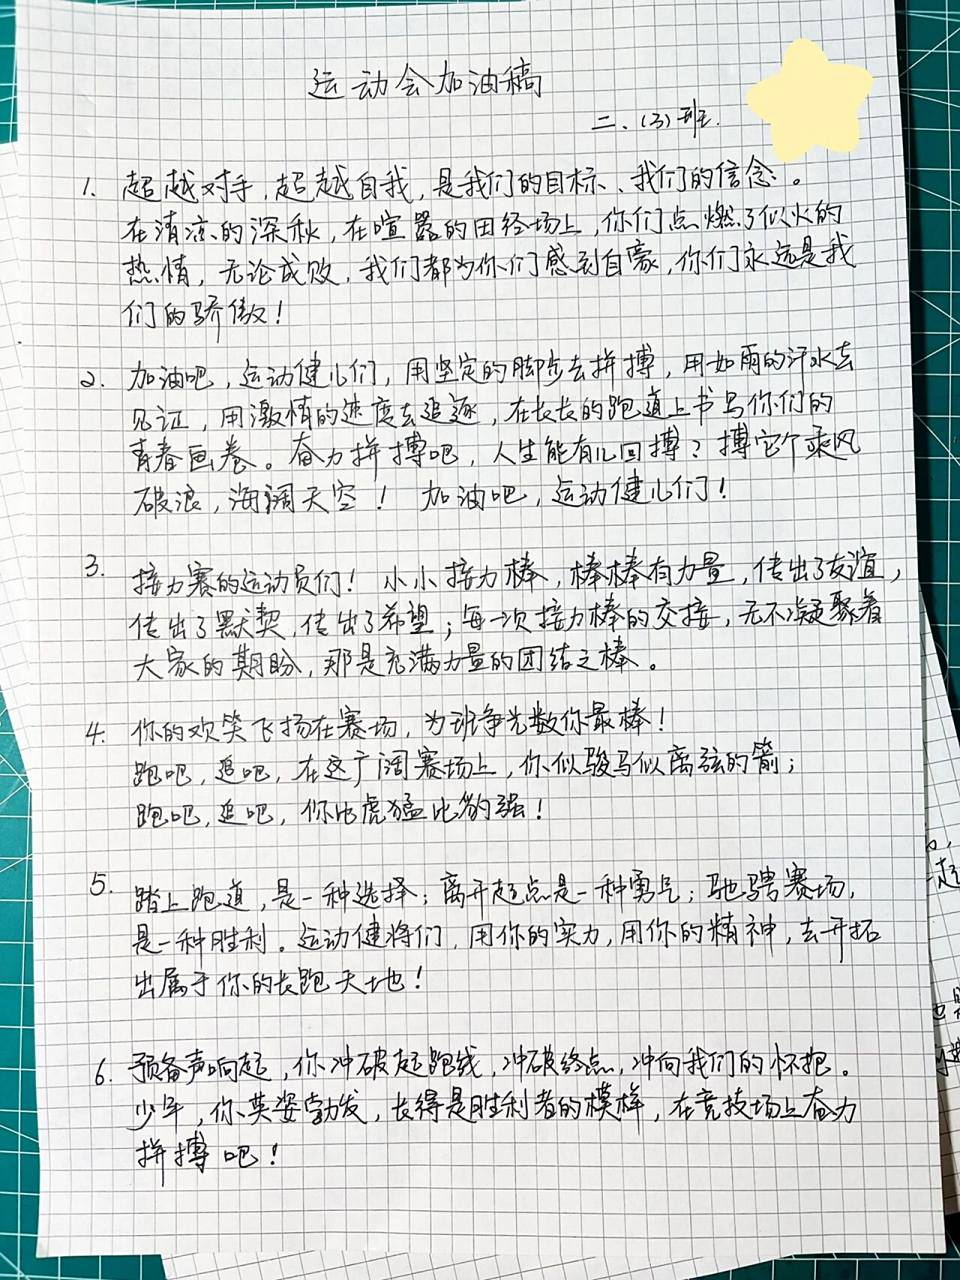 运动会加油稿
二、(3)班.
1. 超越对手,超越自我,是我们的目标、我们的信念。
在清凉的深秋,在喧嚣的田径场上,你们点燃了似火的
热情,无论成败,我们都为你们感到自豪,你们永远是我
们的骄傲!
2. 加油吧,运动健儿们,用坚定的脚步去拼搏,用如雨的汗水去
见证,用激情的速度去追逐,在长长的跑道上书写你们的
青春画卷。奋力拼搏吧,人生能有几回搏?搏它个乘风
破浪,海阔天空! 加油吧,运动健儿们!
3. 接力赛的运动员们!小小接力棒,棒棒有力量,传出了友谊,
传出了默契,传出了希望;每一次接力棒的交接,无不凝聚着
大家的期盼,那是充满力量的团结之棒。
4. 你的欢笑飞扬在赛场,为班争光数你最棒!
跑吧,追吧,在这广阔赛场上,你似骏马似离弦的箭;
跑吧,追吧,你比虎猛比豹强!
5. 踏上跑道,是一种选择;离开起点是一种勇气;驰骋赛场,
是一种胜利。运动健将们,用你的实力,用你的精神,去开拓
出属于你的长跑天地!
6. 预备声响起,你冲破起跑线,冲破终点,冲向我们的怀抱。
少年,你英姿勃发,长得是胜利者的模样,在竞技场上奋力
拼搏吧!